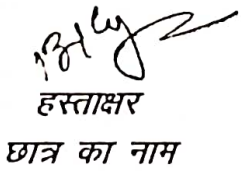 हस्ताक्षर
छात्र का नाम